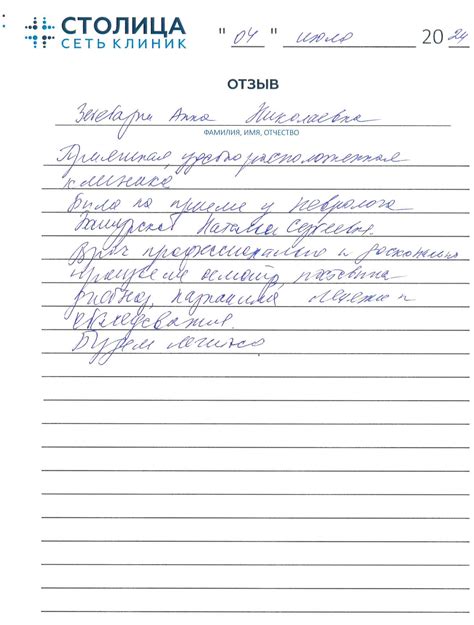 СТОЛИЦА
СЕТЬ КЛИНИК
" 04 " июля 20 24
ОТЗЫВ
Анна Николаевна
ФАМИЛИЯ, ИМЯ, ОТЧЕСТВО
Приятная, удобно расположенная
клиника
Была на приеме у невролога
Натальи Сергеевны.
Врач профессионально и досконально
провела осмотр, поставила
диагноз, назначила лечение и
обследования.
Будем лечиться